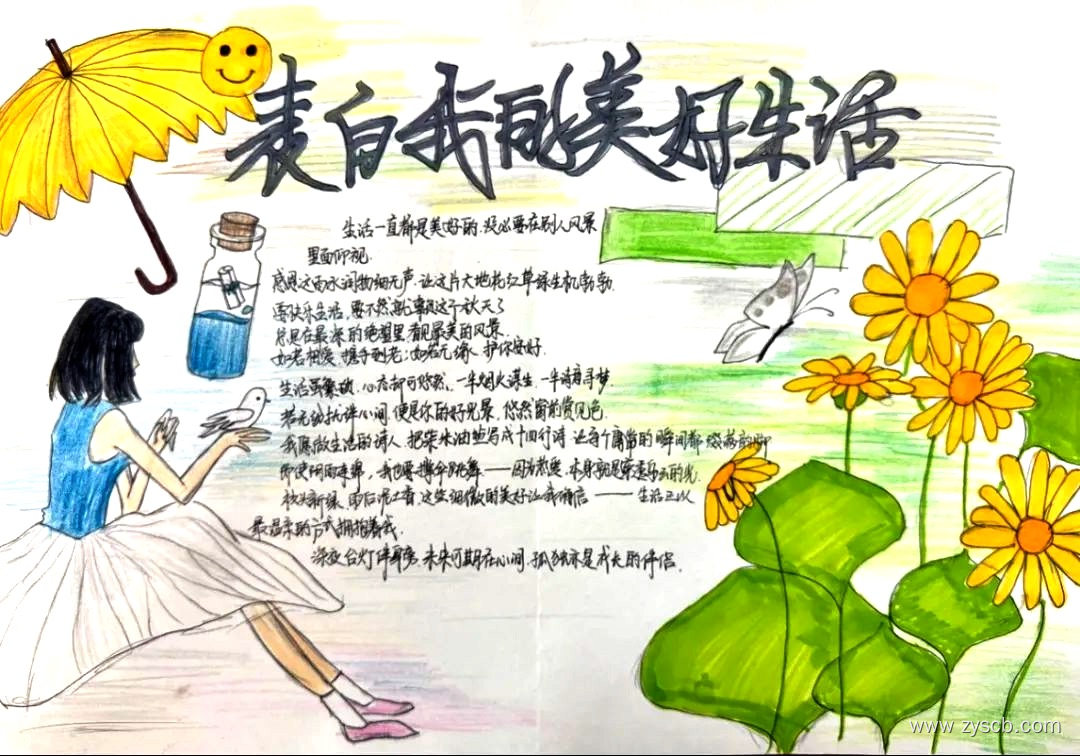 表白我的美好生活
生活一直都是美好的.没必要在别人风景
里面仰视.
感恩这雨水润物细无声.让这片大地花红草绿生机勃勃.
要快乐生活,要不然就辜负这个秋天了
总是在最深的绝望里看见最美的风景.
如若相爱,携手到老;如若无缘,护你安好.
生活虽繁琐,心存却可悠然,一半烟火谋生,一半诗意寻梦.
若无纷扰绊心间,便是你的好光景,悠然窗前赏见色.
我愿做生活的诗人,把柴米油盐写成十四行诗,让每个庸常的瞬间都
即使阴雨连绵,我也要撑伞跳舞——因为热爱,本身就是穿透乌云的光.
枝头新绿,雨后泥土香,这些细微的美好让我确信——生活正以
最温柔的方式拥抱着我.
深夜台灯伴耳旁,未来可期在心间,孤独亦是成长的伴侣.
www.zyscb.com